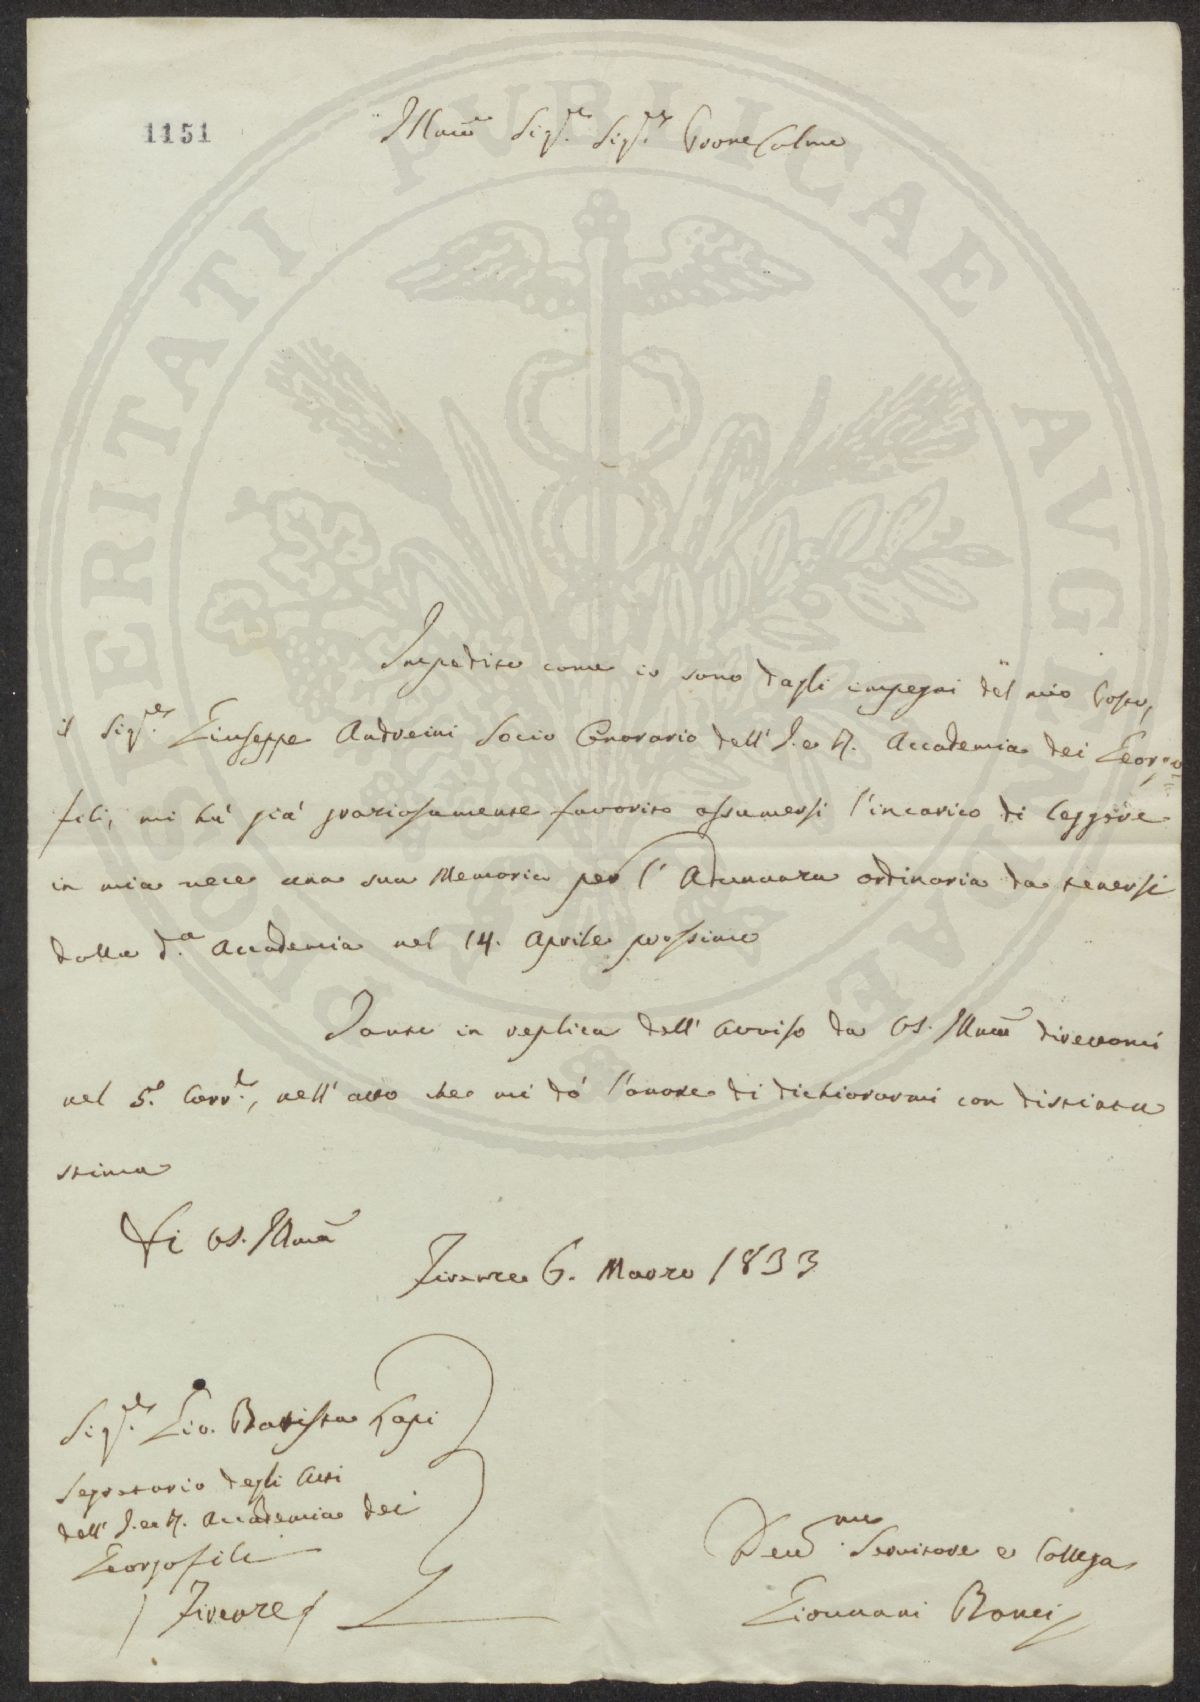 1151
Illmo Sigre Sigre Prone Colmo
PROSPERITATI PUBLICAE AVGENDAE
Impedito come io sono dagli impegni del mio Posto,
il Sigre Giuseppe Andreini Socio Onorario dell' I. e R. Accademia dei Georgo
fili, mi hà già graziosamente favorito assumersi l'incarico di leggere
in mia vece una sua Memoria per l'Adunanza ordinaria da tenersi
dalla da Accademia nel 14. Aprile prossimo
Tanto in replica dell' avviso da VS. Illma direttomi
nel 5. Corre, nell' atto che mi dò l'onore di dichiararmi con distinta
stima
Di VS. Illma
Firenze 6. Marzo 1833
Sigre Gio. Batista Lapi
Segretario degli Atti
dell' I. e R. Accademia dei
Georgofili
/ Firenze /
Devmo Servitore e Collega
Giovanni